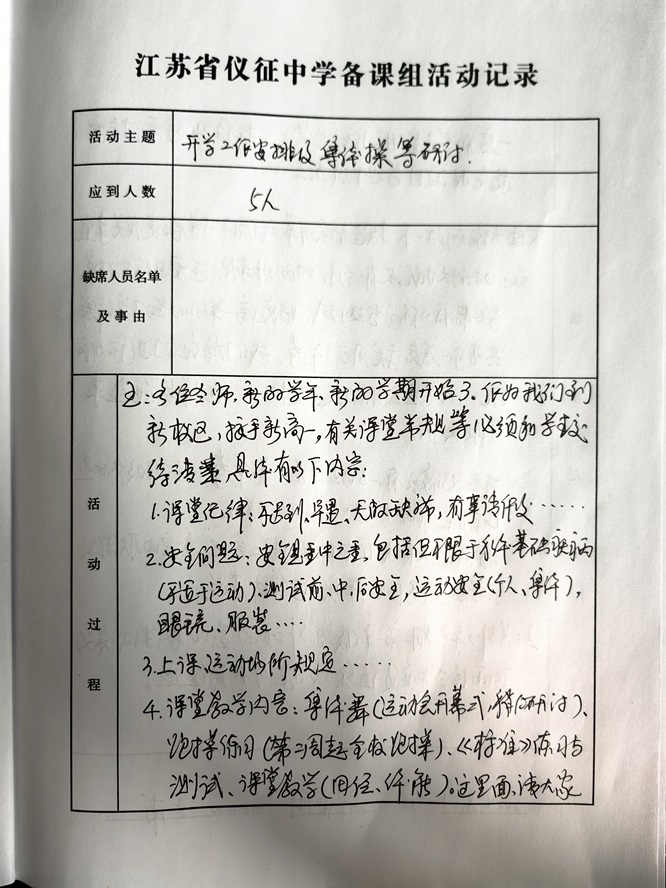 江苏省仪征中学备课组活动记录
活动主题
开学工作安排及集体操等研讨.
应到人数
5人
缺席人员名单
及事由
活动过程
王:各位老师,新的学年、新的学期开始了。作为我们到
新校区,接手新高一,有关课堂常规等必须和学校
具体有以下内容:
1.课堂纪律:不迟到、早退、无故缺席,有事请假……
2.安全问题:安全是重中之重,包括但不限于身体基础疾病
(不适于运动)、测试前、中、后安全,运动安全(个人、集体),
眼镜、服装……
3.上课运动场所规定……
4.课堂教学内容:集体舞(运动会开幕式,稍后研讨)、
跑操练习(第二周起全校跑操)、《标准》练习与
测试、课堂教学(田径、体能)。这里面,请大家